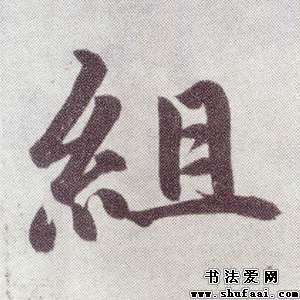 組
书法爱网
www.shufaai.com